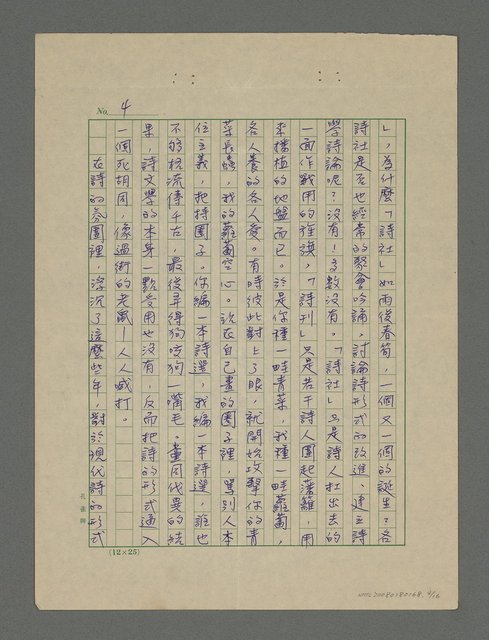 No. 4
」，為什麼「詩社」如雨後春筍，一個又一個的誕生？各
詩社是否也經常的聚會吟誦、討論詩形式的改進、建立詩
學詩論呢？沒有！多數沒有。「詩社」只是詩人扛出去的
一面作戰用的旌旗，「詩刊」只是若干詩人圍起藩籬，用
來播植的地盤而已。於是你種一畦青菜，我種一畦蘿蔔，
各人養的各人愛。有時彼此對上了眼，就開始攻擊你的青
菜長蟲，我的蘿蔔空心。說在自己畫的圈子裡，罵別人本
位主義，把持圈子。你編一本詩選，我編一本詩選，誰也
不夠格流傳千古，最後弄得狗咬狗一嘴毛。黨同伐異的結
果，詩文學的本身一點受用也沒有，反而把詩的形式逼入
一個死胡同，像過街的老鼠—人人喊打。
在詩的氛圍裡，浮沉了這麼些年，對於現代詩的形式
(12×25)
孔雀牌
NMTL20080180168. 4/16